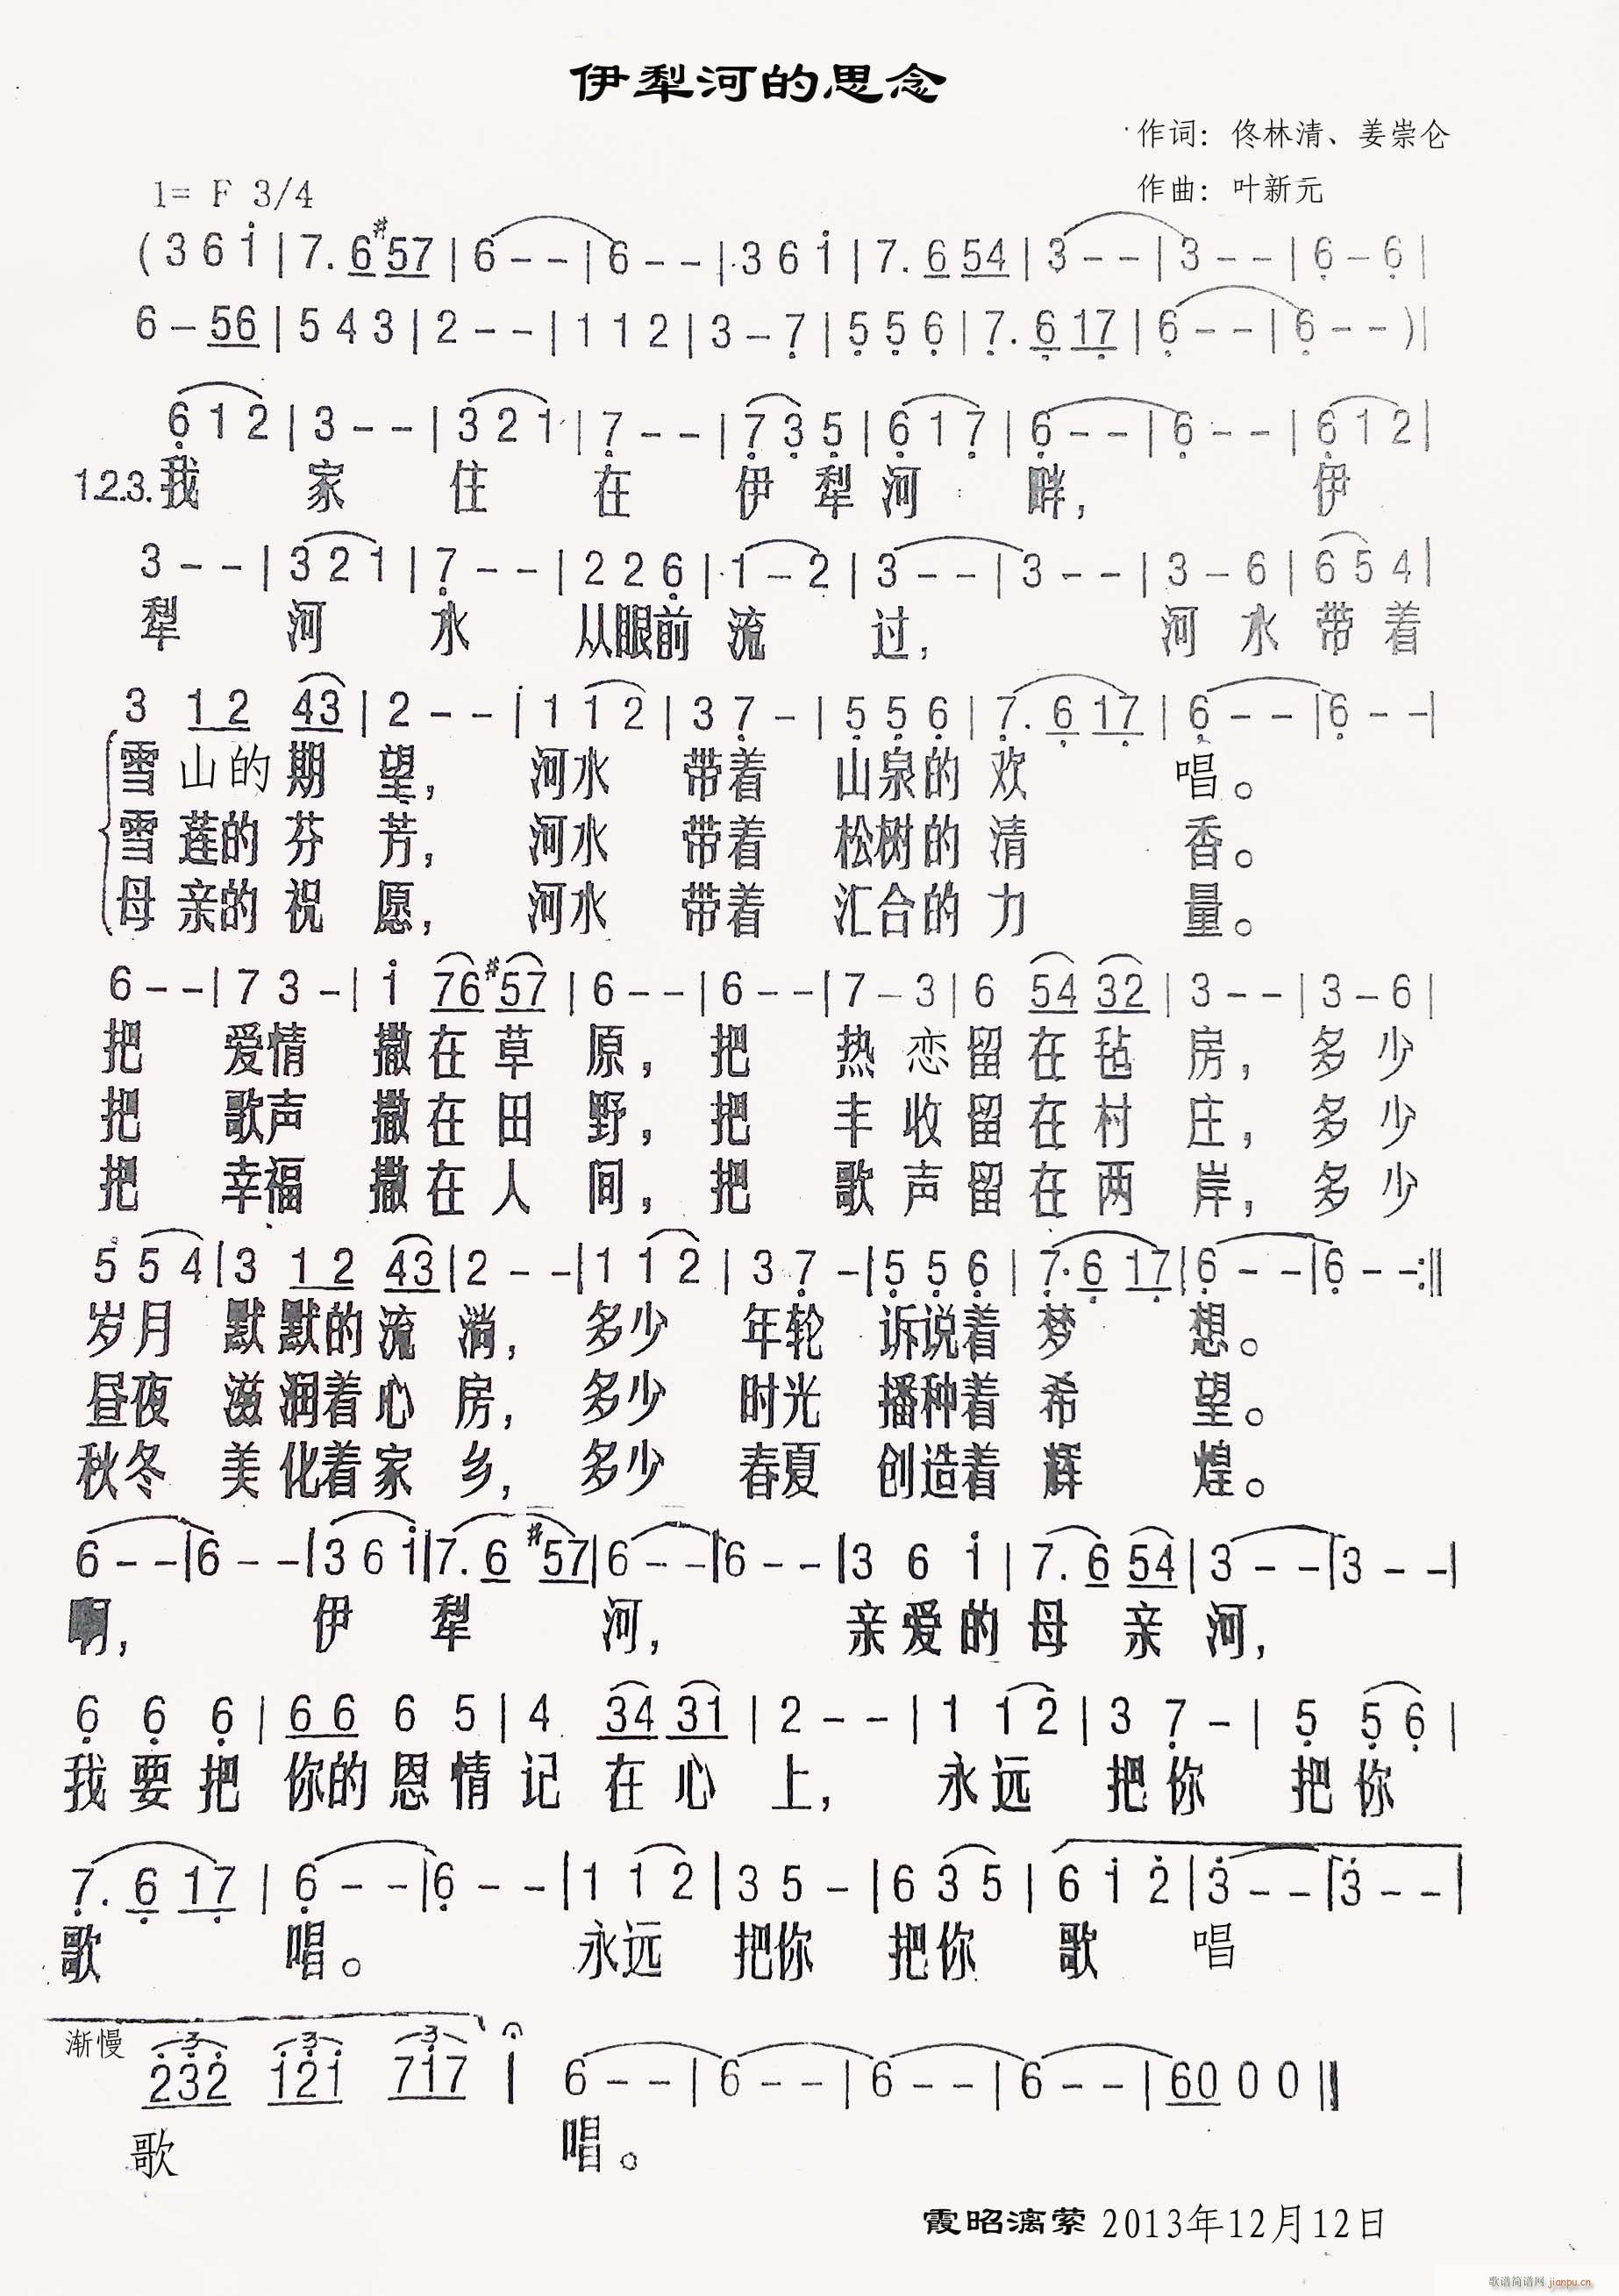 伊犁河的思念
作词：佟林清、姜崇仑
1= F 3/4
作曲：叶新元
( 3 6 i | 7. 6 #57 | 6 - - | 6 - - | 3 6 i | 7. 6 54 | 3 - - | 3 - - | 6 - 6 |
6 - 56 | 5 4 3 | 2 - - | 1 1 2 | 3 - 7 | 5 5 6 | 7. 6 17 | 6 - - | 6 - - ) |
6 1 2 | 3 - - | 3 2 1 | 7 - - | 7 3 5 | 6 1 7 | 6 - - | 6 - - | 6 1 2 |
1.2.3. 我 家 住 在 伊 犁 河 畔， 伊
3 - - | 3 2 1 | 7 - - | 2 2 6 | 1 - 2 | 3 - - | 3 - - | 3 - 6 | 6 5 4 |
犁 河 水 从眼前 流 过， 河 水 带 着
3 12 43 | 2 - - | 1 1 2 | 3 7 - | 5 5 6 | 7. 6 17 | 6 - - | 6 - - |
雪 山的 期 望， 河水 带着 山泉的 欢 唱。
雪 莲的 芬 芳， 河水 带着 松树的 清 香。
母 亲的 祝 愿， 河水 带着 汇合的 力 量。
6 - - | 7 3 - | i 76 #57 | 6 - - | 6 - - | 7 - 3 | 6 54 32 | 3 - - | 3 - 6 |
把 爱情 撒 在 草 原， 把 热 恋 留 在 毡 房， 多 少
把 歌声 撒 在 田 野， 把 丰 收 留 在 村 庄， 多 少
把 幸福 撒 在 人 间， 把 歌 声 留 在 两 岸， 多 少
5 5 4 | 3 12 43 | 2 - - | 1 1 2 | 3 7 - | 5 5 6 | 7. 6 17 | 6 - - | 6 - - :||
岁月 默 默的 流 淌， 多少 年轮 诉说着 梦 想。
昼夜 滋 润着 心 房， 多少 时光 播种着 希 望。
秋冬 美 化着 家 乡， 多少 春夏 创造着 辉 煌。
6 - - | 6 - - | 3 6 i | 7. 6 #57 | 6 - - | 6 - - | 3 6 i | 7. 6 54 | 3 - - | 3 - - |
啊， 伊 犁 河， 亲 爱 的 母 亲 河，
6 6 6 | 66 6 5 | 4 34 31 | 2 - - | 1 1 2 | 3 7 - | 5 5 6 |
我 要 把 你的 恩 情 记 在 心 上， 永 远 把 你 把 你
7. 6 17 | 6 - - | 6 - - | 1 1 2 | 3 5 - | 6 3 5 | 6 i 2 | 3 - - | 3 - - |
歌 唱。 永远 把你 把你 歌 唱
渐慢 3 3 3
232 121 717 | 6 - - | 6 - - | 6 - - | 6 - - | 60 0 0 ||
歌 唱。
霞昭漓萦 2013年12月12日
歌谱简谱网 jianpu.cn